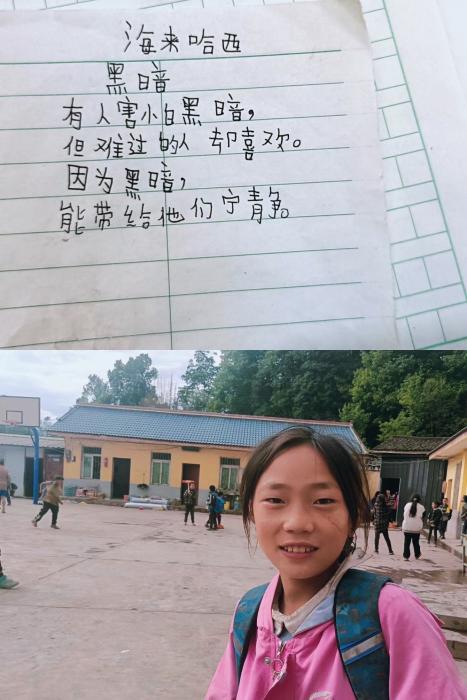 海来哈西
黑暗
有人害怕黑暗，
但难过的人却喜欢。
因为黑暗，
能带给他们宁静。